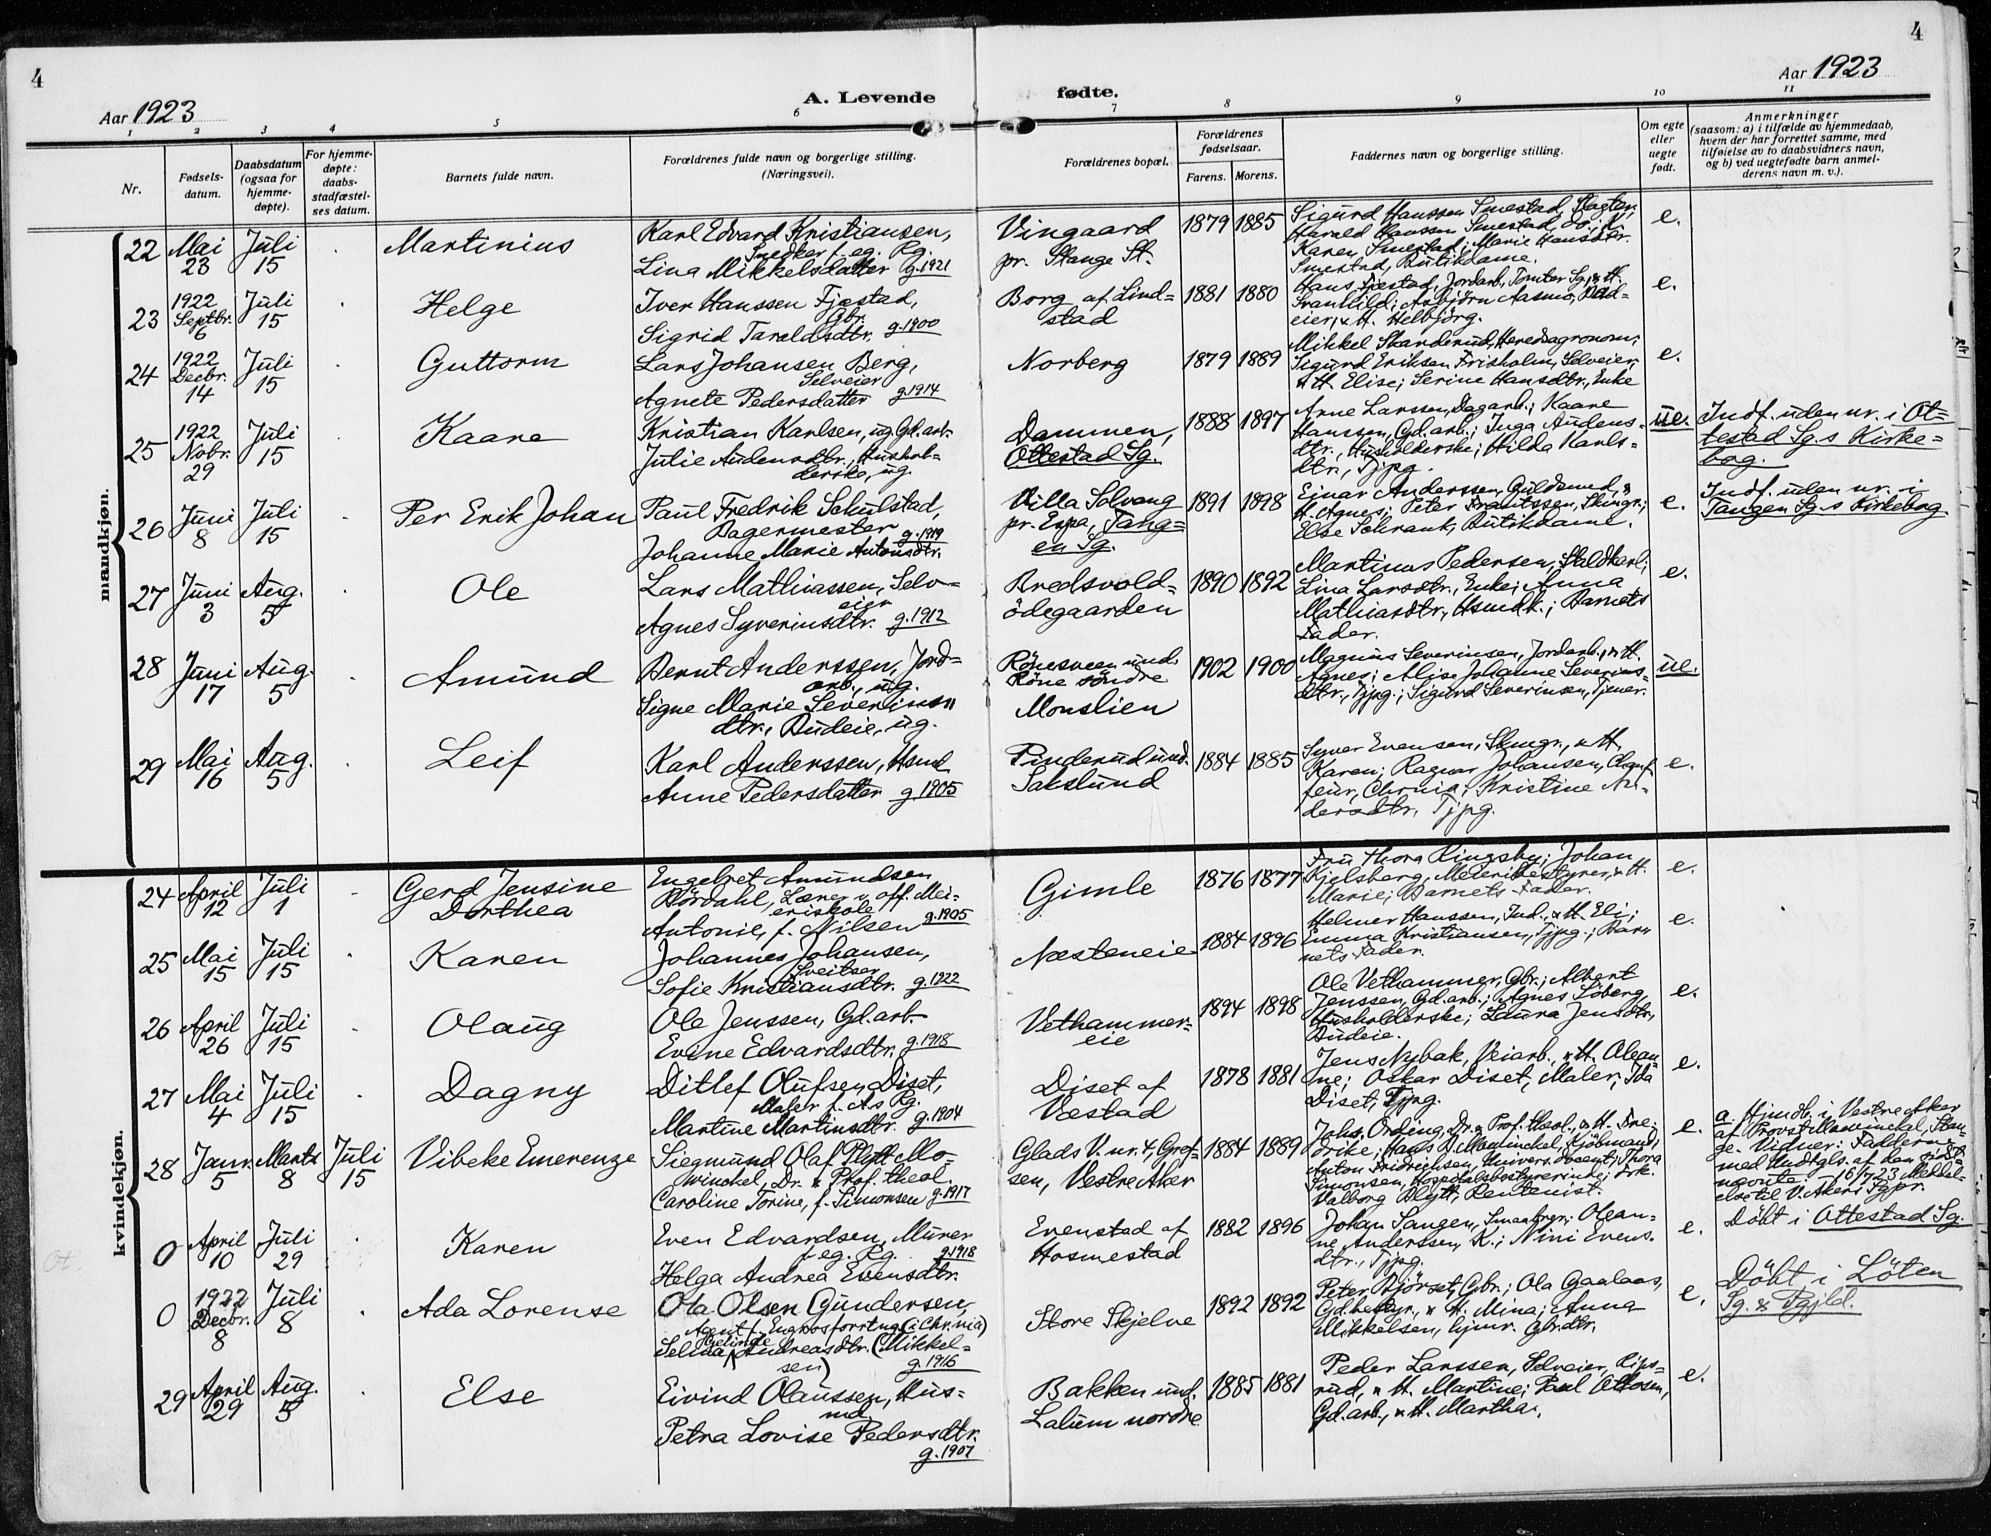 4
4
Aar 1923
A. Levende fødte.
Aar 1923
1 2 3 4 5 6 7 8 9 10 11
Nr.
Fødsels-
datum.
Daabsdatum
(ogsaa for
hjemme-
døpte).
For hjemme-
døpte:
daabs-
stadfæstel-
ses datum.
Barnets fulde navn.
Forældrenes fulde navn og borgerlige stilling.
(Næringsvei).
Forældrenes bopæl.
Forældrenes
fødselsaar.
Farens. Morens.
Faddernes navn og borgerlige stilling.
Om egte
eller
uegte
født.
Anmerkninger
(saasom: a) i tilfælde av hjemmedaab,
hvem der har forrettet samme, med
tilføielse av to daabsvidners navn,
og b) ved uegtefødte barn anmel-
derens navn m. v.).
mandkjøn.
22 Mai 23 Juli 15 Martinius
Karl Edvard Kristiansen,
Snedker f. eg. Rg.
Lina Mikkelsdatter g.1921
Vingaard
pr. Stange St.
1879 1885
Sigurd Hanssen Smestad, Slagter;
Harald Hanssen Smestad,
Karen Smestad; Marie Hansdtr.
Smestad, Butikdame.
e.
23 1922 Septbr. 6 Juli 15 Helge
Iver Hanssen Fjæstad,
Gbr.
Sigrid Taraldsdtr. g.1900
Borg af Lind-
stad
1881 1880
Hans Fjæstad, Jordarb., Tomter Sg., & H.
Svanhild; Asbjörn Aasmo,
eier, & H. Helbjörg.
e.
24 1922 Decbr. 14 Juli 15 Guttorm
Lars Johansen Berg,
Selveier
Agnete Pedersdatter g.1914
Norberg
1879 1889
Mikkel Skanderud, Heredsagronom;
Sigurd Eriksen Frisholm, Selveier,
& H. Elise; Serine Hansdtr., Enke
e.
25 1922 Novbr. 29 Juli 15 Kaare
Kristian Karlsen, ug. Gd.arb.
Julie Audensdtr., Mushol-
derske, ug.
Dammen,
Ottestad Sg.
1888 1897
Arne Larssen, Dagarb.; Kaare
Hanssen, Gd.arb.; Inga Audens-
dtr., Husholderske; Hilda Karls-
dtr., Tjpg.
ue.
Indf. uden nr. i Ot-
testad Sg.s Kirke-
bog.
26 Juni 8 Juli 15 Per Erik Johan
Paul Fredrik Schulstad,
Bagermester g.1919
Johanne Marie Antonsdtr.
Villa Solvang
pr. Espa, Tang-
en Sg.
1891 1898
Einar Anderssen, Guldsmed, &
H. Agnes; Peter Frantssen, Skingr.;
Else Schrank, Butikdame.
e.
Indf. uden nr. i
Tangen Sg.s Kirkebog.
27 Juni 3 Aug. 5 Ole
Lars Mathiassen, Selv-
eier
Agnes Syverinsdtr. g.1912
Bredsvold-
ödegaarden
1890 1892
Martinus Pedersen, Staldkarl;
Lina Larsdtr., Enke; Anna
Mathiasdtr., Hsmdk.; Barnets
Fader.
e.
28 Juni 17 Aug. 5 Amund
Bernt Anderssen, Jord-
arb., ug.
Signe Marie Severins-
dtr., Budeie, ug.
Rönesveen und.
Röne söndre
Monslien
1902 1900
Magnus Severinsen, Jordarb., & H.
Agnes; Alise Johanne Severins-
dtr., Tjpg.; Sigurd Severinsen, Tjener.
ue.
29 Mai 16 Aug. 5 Leif
Karl Anderssen, Hsmd
Anne Pedersdatter g.1905
Pinderud und.
Sakslund
1884 1885
Syver Evensen, Skingr., & H.
Karen; Ragnar Johansen, Chauf-
feur, Chrnia; Kristine An-
dersdtr. Tjpg.
e.
kvindekjøn.
24 April 12 Juli 1 Gerd Jensine
Dorthea
Engebret Amundsen
Bördahl, Lærer v. off. Mei-
eriskole g.1905
Antonie, f. Nilsen
Gimle
1876 1877
Fru Thora Ringsby; Johan
Kjelsberg, Meieribestyrer, & H.
Marie; Barnets Fader.
e.
25 Mai 15 Juli 15 Karen
Johannes Johansen,
Sveitser
Sofie Kristiansdtr. g.1922
Næsteneie
1884 1896
Helmer Hanssen, Ind., & H. Eli;
Emma Kristiansen, Tjpg.; Bar-
nets Fader.
e.
26 April 26 Juli 15 Olaug
Ole Jenssen, Gd.arb.
Evine Edvardsdtr. g.1918
Vethammer-
eie
1894 1898
Ole Vethammer, Gbr.; Albert
Jenssen, Gd.arb.; Agnes Löberg,
Husholderske; Laura Jensdtr.,
Budeie.
e.
27 Mai 4 Juli 15 Dagny
Ditlef Olufsen Diset,
Maler f. A.s Rg.
Martine Martinsdtr. g.1904
Diset af
Væstad
1878 1881
Jens Nybak, Veiarb., & H. Olean-
ne; Oskar Diset, Maler; Ida
Diset, Tjpg.
e.
28 Janr. 5 Marts 8 Juli 15 Vibeke Emerenze
Siegmund Olaf Plytt Mo-
winckel, Dr. & Prof. theol.
Caroline Torine, f. Simonsen g.1917
Glads V. nr. 4, Gref-
sen, Vestre Aker
1884 1889
Johs. Ording, Dr. & Prof. theol., & H. Fre-
drike; Hans D. Mowinckel, Kjöbmand;
Anton Fridrichsen, Univers. Docent; Thora
Simonsen, Hospitalsbestyrerinde; Frk.
Valborg Blytt, Rentenist.
e.
a. Hjmdb. i Vestre Aker
af Provst Mowinckel, Stan-
ge. Vidner: Fadderne
med Undtgls. af den sidst
nævnte. 16/7 23 Meddel-
else til V. Akers Sgpr.
0 April 10 Juli 29 Karen
Even Edvardsen, Murer
f. eg. Rg. g.1918
Helga Andrea Evensdtr.
Evenstad af
Hosmestad
1882 1896
Johan Sangen, Smaabrgr.; Olean-
ne Anderssen, K.; Nini Evens-
dtr., Tjpg.
e.
Döbt i Ottestad Sg.
Ot.
0 1922 Decbr. 8 Juli 8 Ada Lorense
Ola Olsen Gundersen,
Agent f. Engrosforrtng (i Chr.nia)
Selma Gelinde Andreasdtr. (Mikkel-
sen) g.1916
Store Skjelve
1892 1892
Peter Björset, Gbr.; Ola Gaalaas,
Gdbestyr., & H. Mina; Anna
Mikkelsen, hjmv. Gbr.dtr.
e.
Döbt i Löten
Sg. & Pgjld.
29 April 29 Aug. 5 Else
Eivind Olaussen, Hus-
md
Petra Lovise Pedersdtr.
g.1907
Bakken und.
Lalum nordre
1885 1881
Peder Larssen, Selveier, Rips-
rud, & H. Martine; Paul Ottosen,
Gd.arb., & H. Martha.
e.